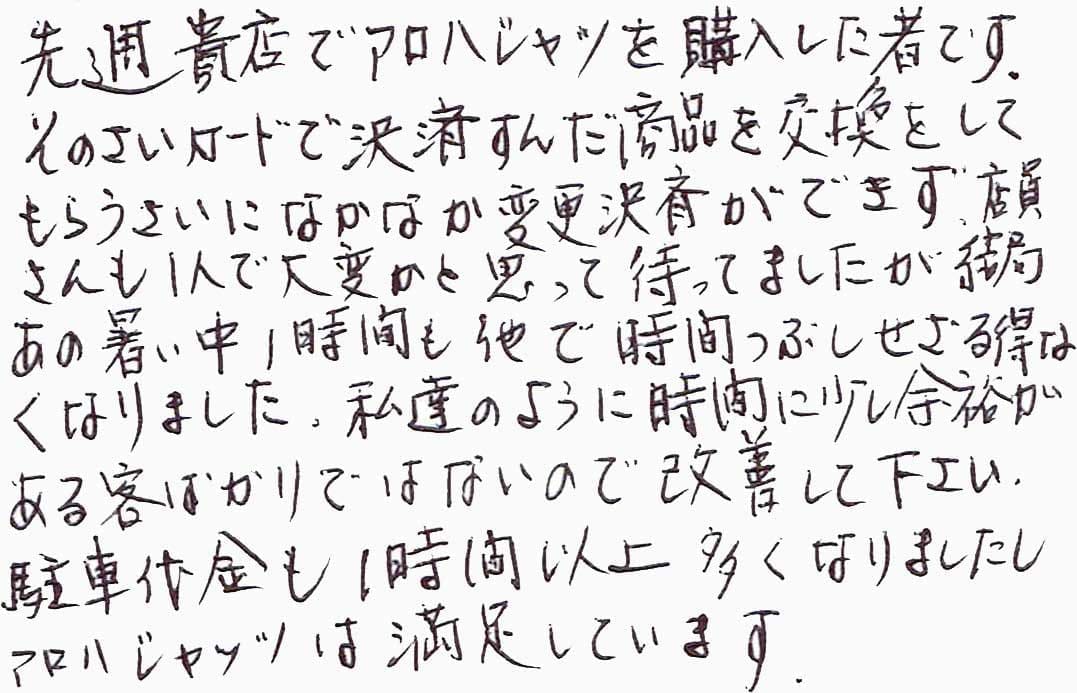 先週貴店でアロハシャツを購入した者です.
そのさいカードで決済すんだ商品を交換をして
もらうさいになかなか変更決済ができず、店員
さんも1人で大変かと思って待ってましたが結局
あの暑い中1時間も他で時間つぶしせざる得な
くなりました。私達のように時間に少し余裕が
ある客ばかりではないので改善して下さい.
駐車代金も1時間以上多くなりましたし
アロハシャツは満足しています.